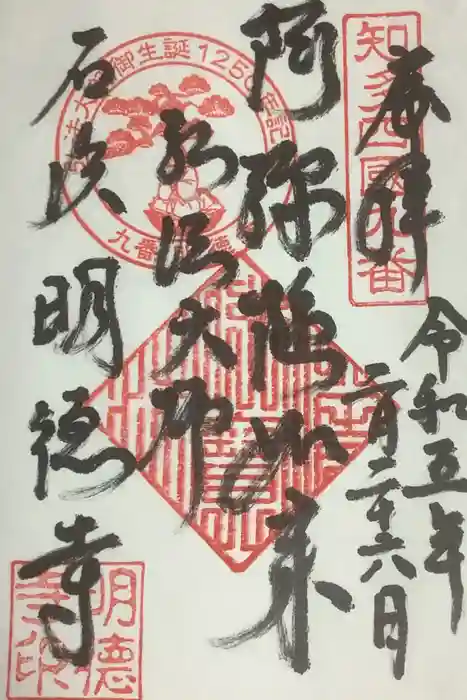 奉拝
知多四國九番
令和五年
二月二十六日
阿弥陀如来
弘法大師
弘法大師御生誕1250年記念
九番
石浜
明徳寺
明德
寺印